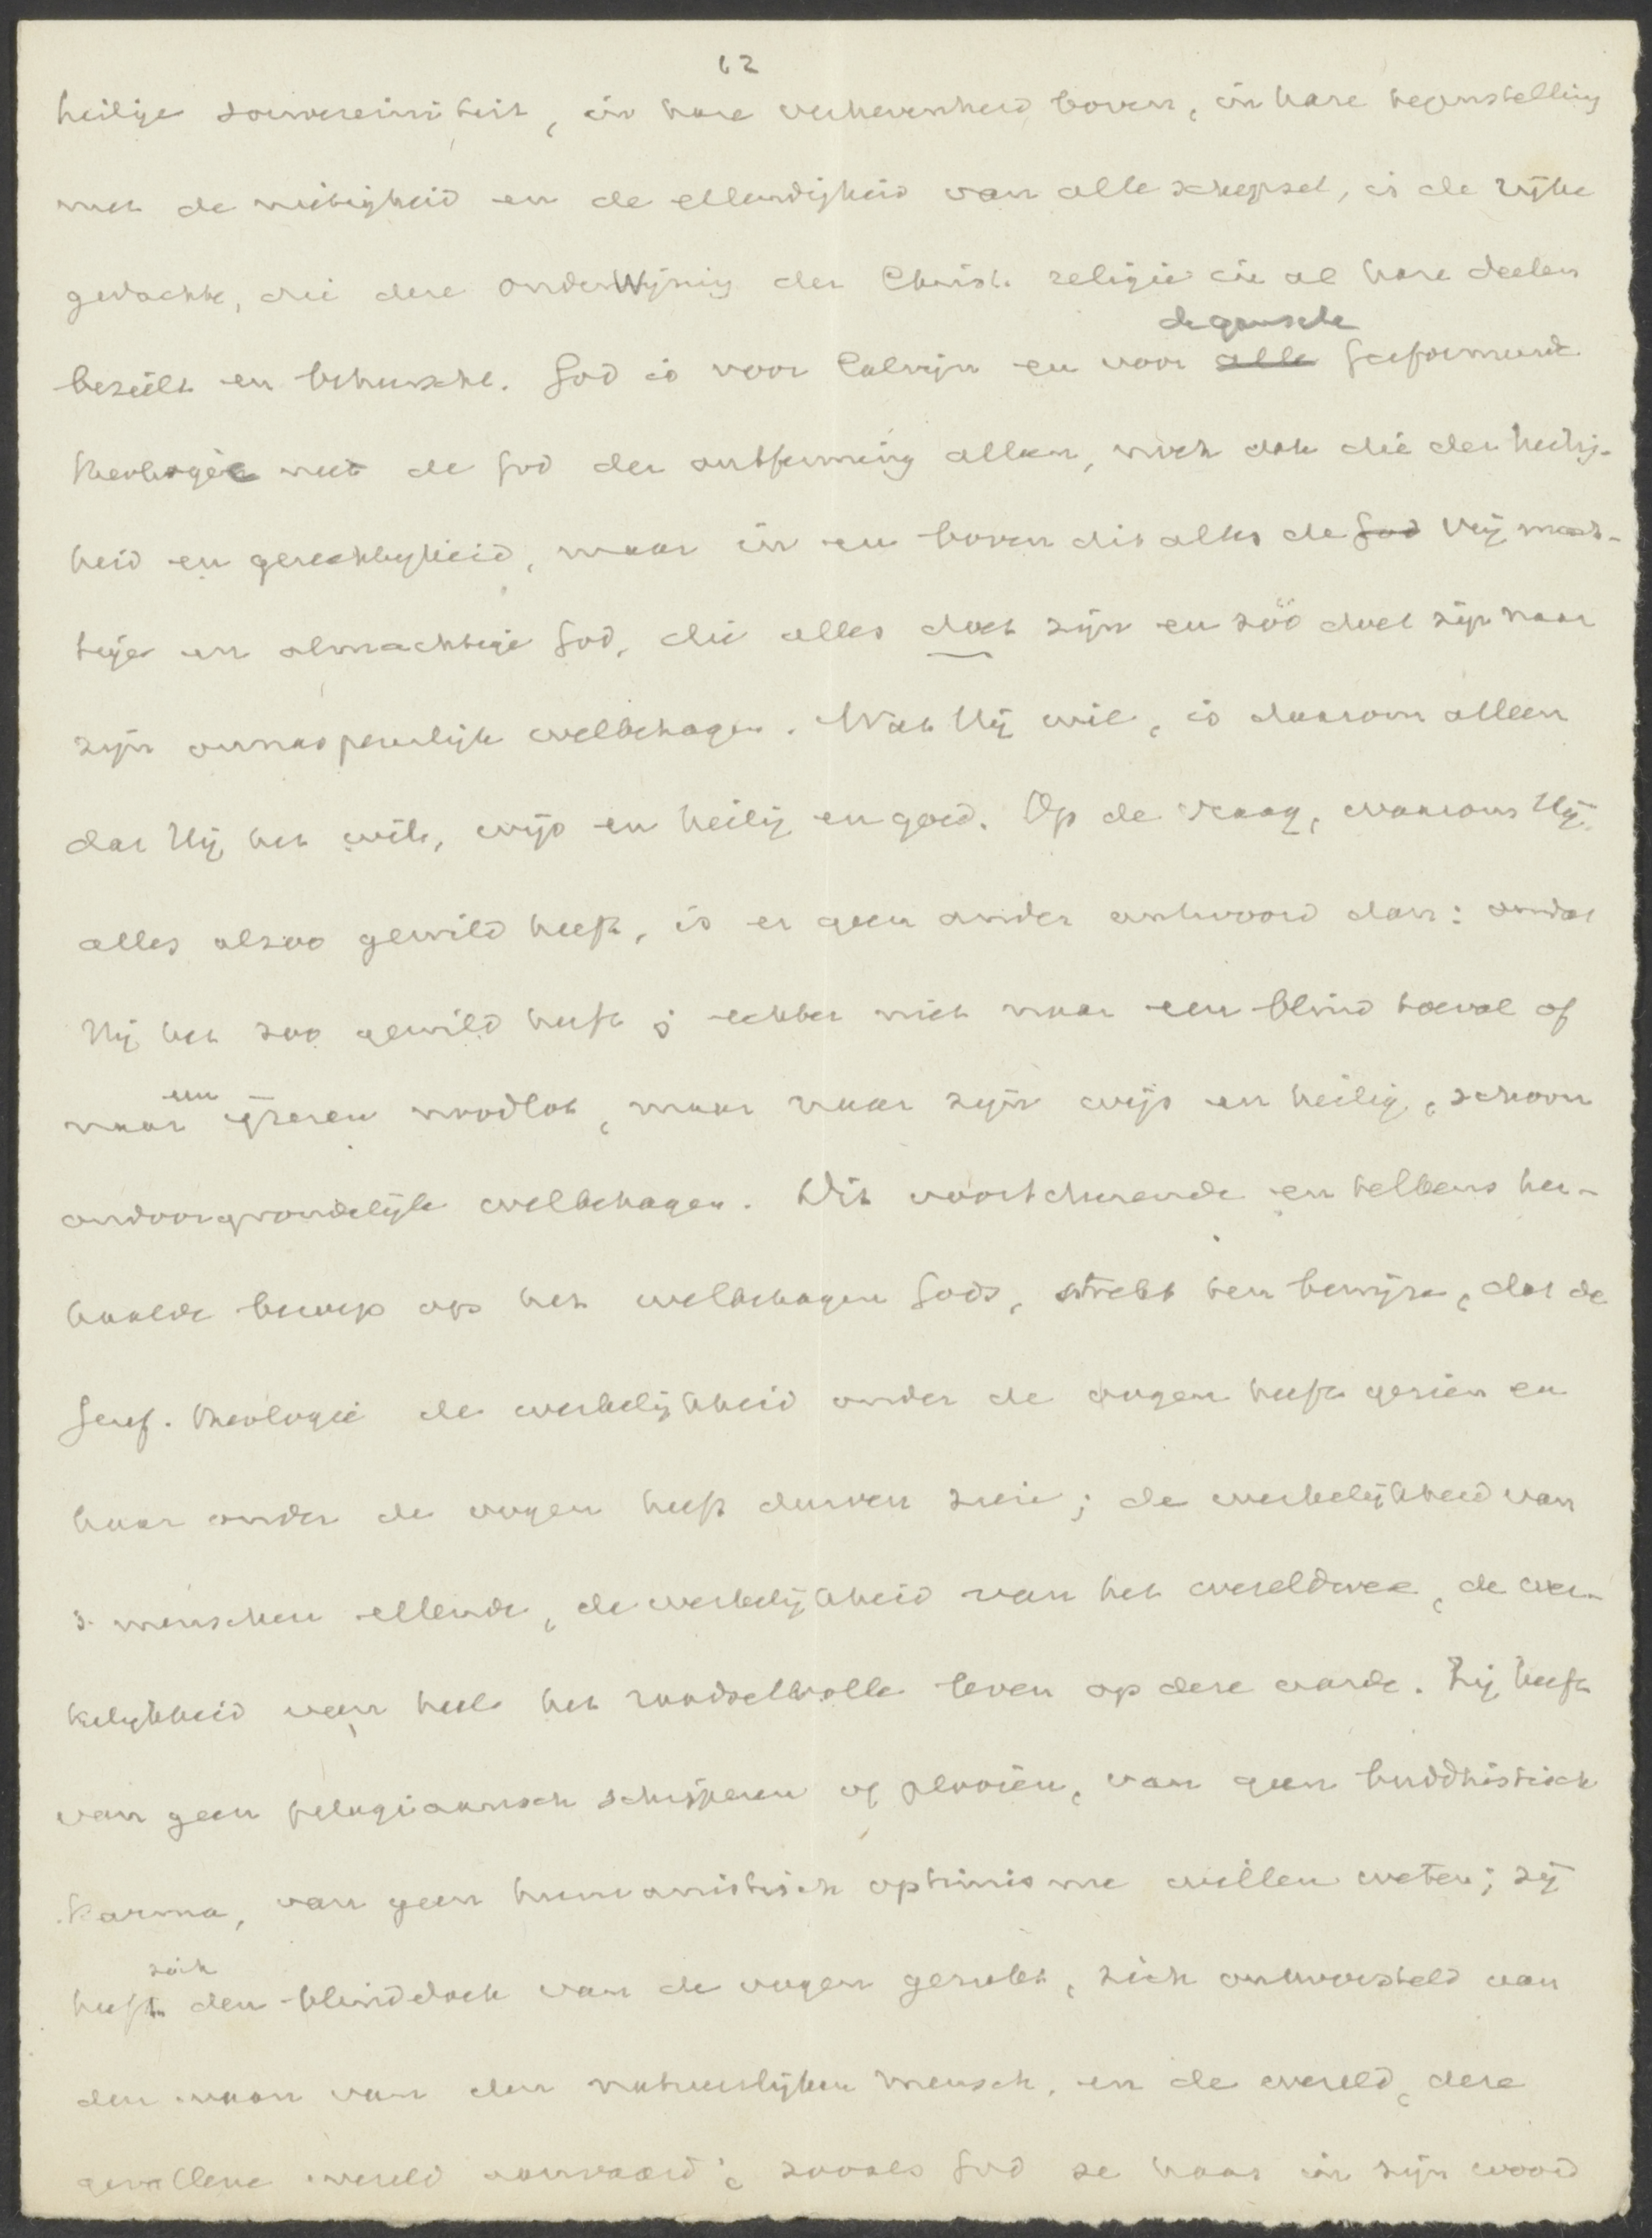 62
heilige souvereiniteit, in hare verhevenheid boven, in hare tegenstelling
met de nietigheid en de ellendigheid van alle schepsel, is de rijke
gedachte, die deze onderwijzing der Christ. religie in al hare deelen
de gansche
bezielt en beheerscht. God is voor Calvijn en voor alle Gereformeerde
theologie niet de God der ontferming alleen, noch ook die der heilig-
heid en gerechtigheid, maar in en boven dit alles de God vrijmach-
tige en almachtige God, die alles doet zijn en zóó doet zijn naar
zijn onnaspeurlijk welbehagen. Wat Hij wil, is daarom alleen
dat Hij het wil, wijs en heilig en goed. Op de vraag, waarom Hij
alles alzoo gewild heeft, is er geen ander antwoord dan: omdat
Hij het zoo gewild heeft; echter niet naar een blind toeval of
een
naar ijzeren noodlot, maar naar zijn wijs en heilig, schoon
ondoorgrondelijk welbehagen. Dit voortdurende en telkens her-
haalde beroep op het welbehagen Gods, strekt ten bewijze, dat de
Geref. theologie de werkelijkheid onder de oogen heeft gezien en
haar onder de oogen heeft durven zien; de werkelijkheid van
's menschen ellende, de werkelijkheid van het wereldwee, de wer-
kelijkheid van heel het raadselvolle leven op deze aarde. Zij heeft
van geen pelagiaansch schipperen of plooien, van geen buddhistisch
Karma, van geen humanistisch optimisme willen weten; zij
zich
heeft den blinddoek van de oogen gerukt, zich ontworsteld aan
den waan van den natuurlijken mensch, en de wereld, deze
gevallene wereld aanvaard, zooals God ze haar in zijn woord